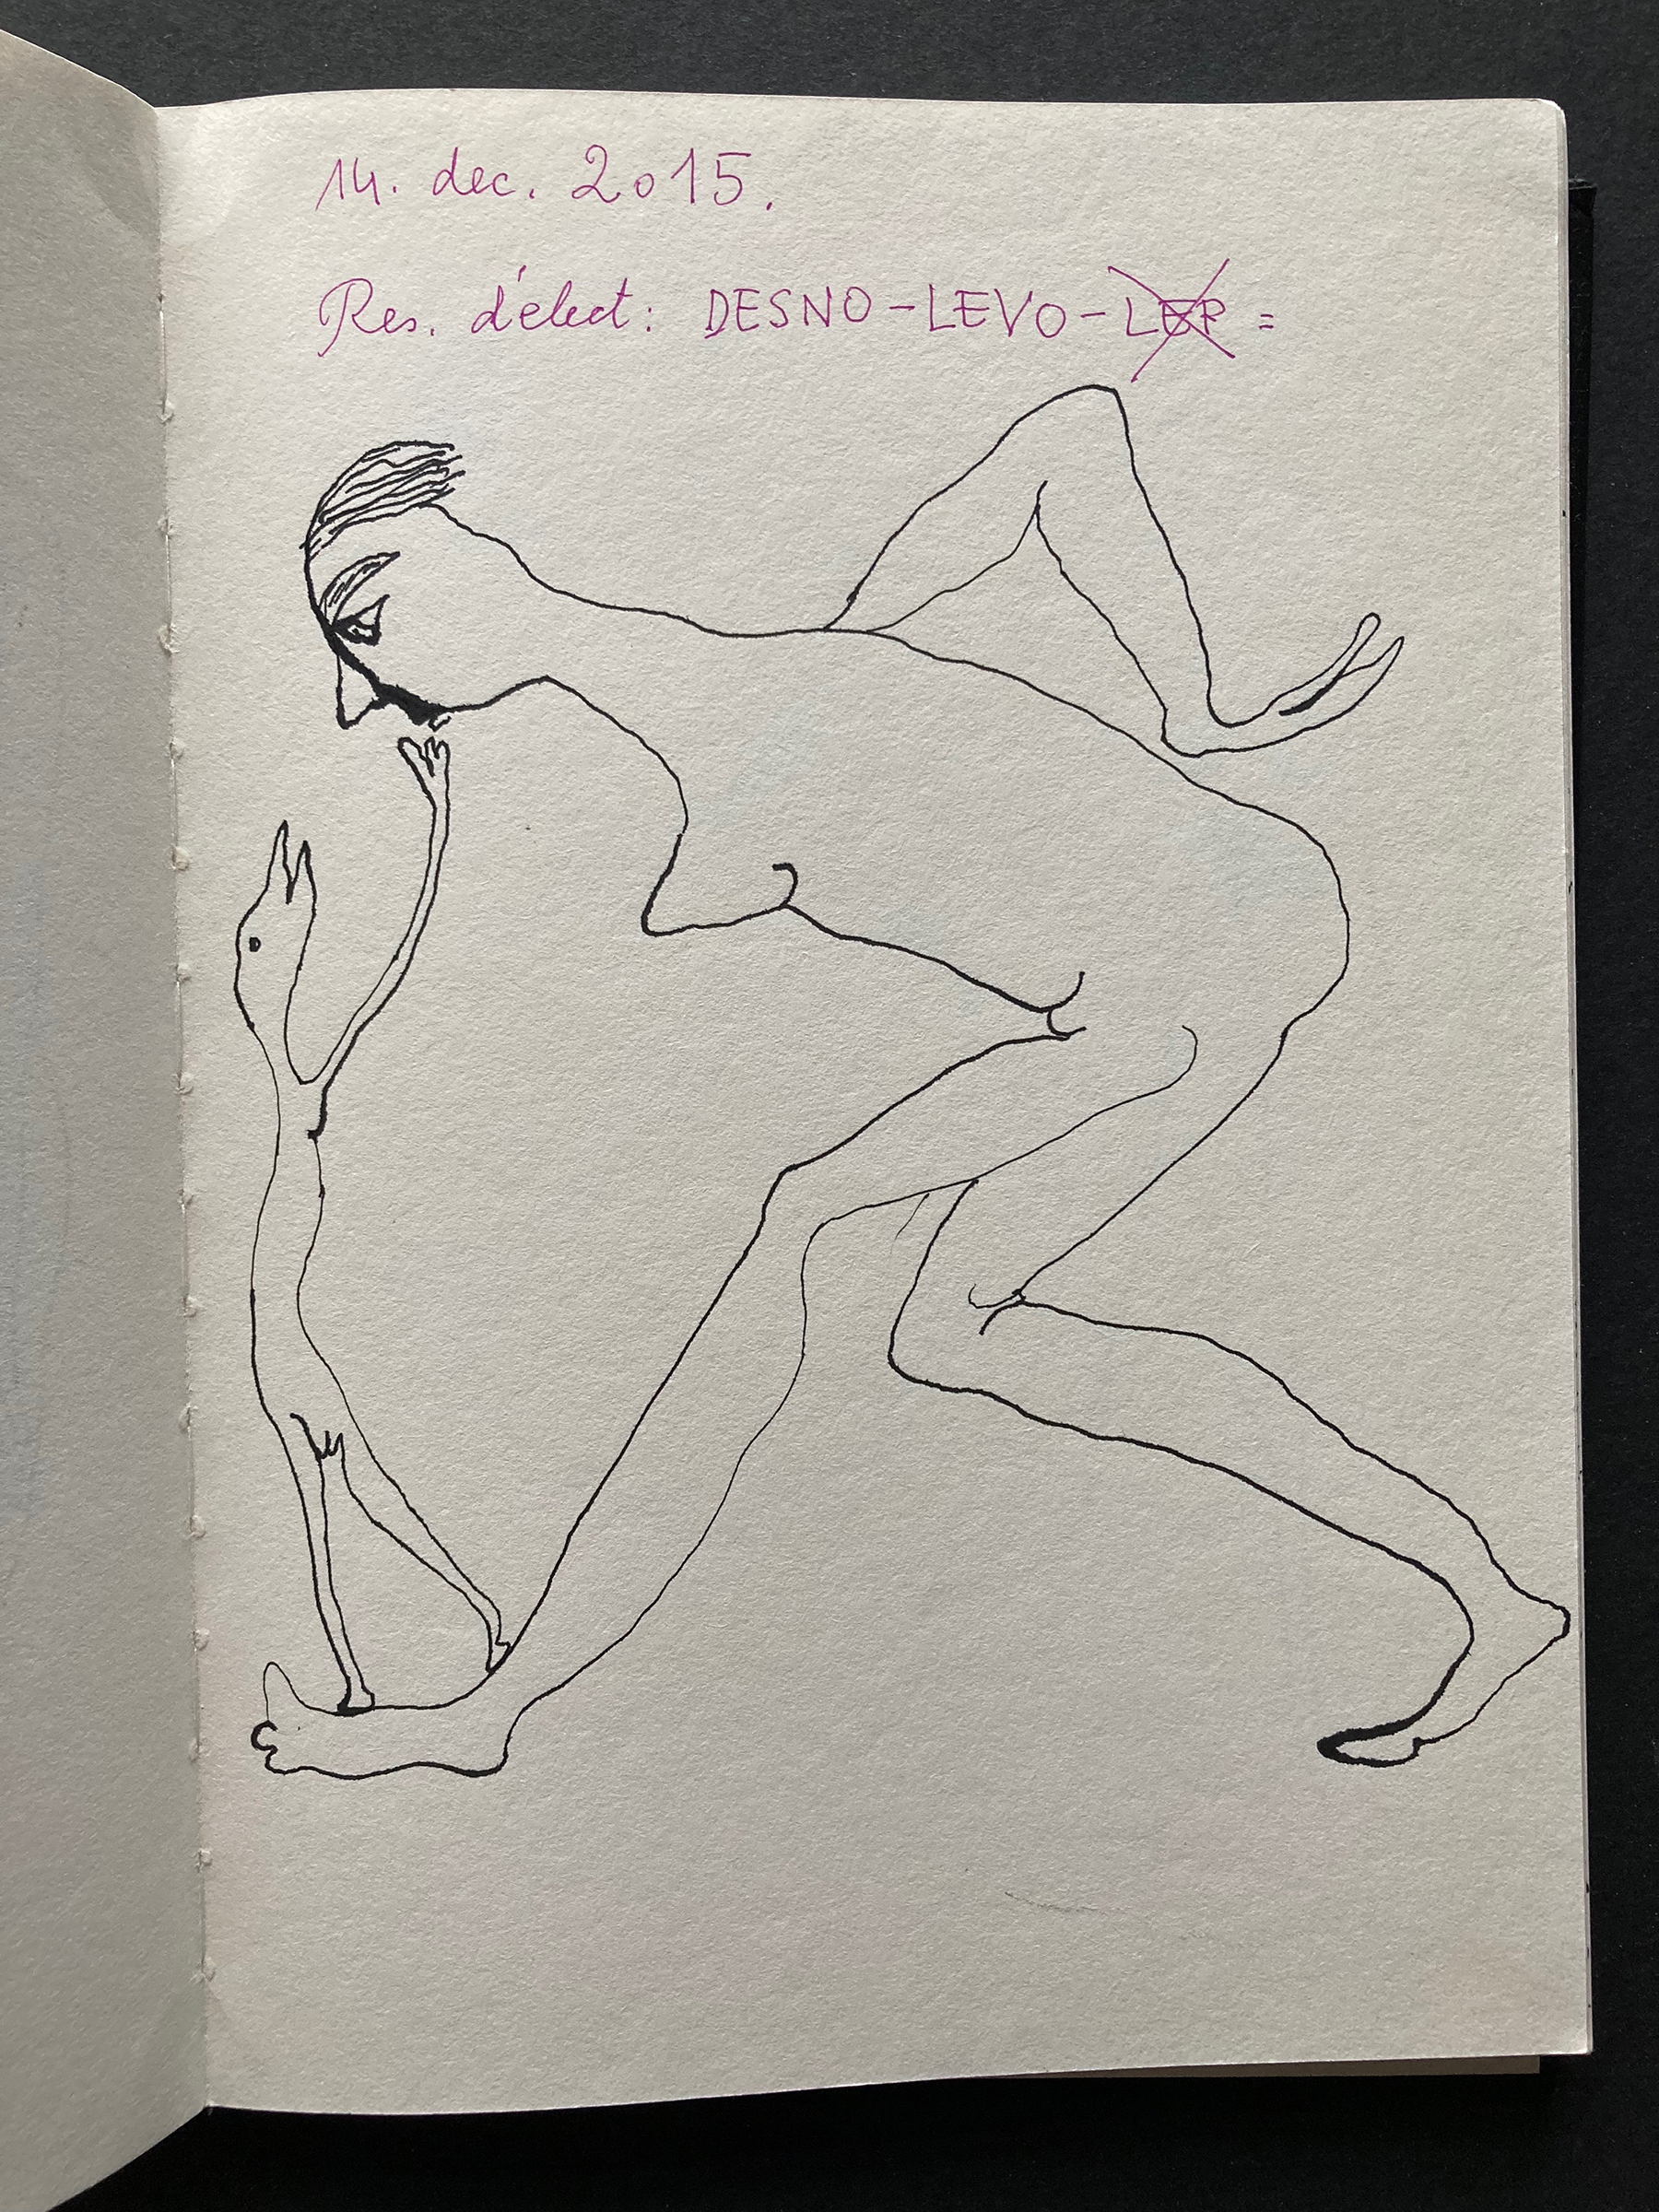 14. dec. 2015.
Res. d'élect: DESNO-LEVO-LEP =